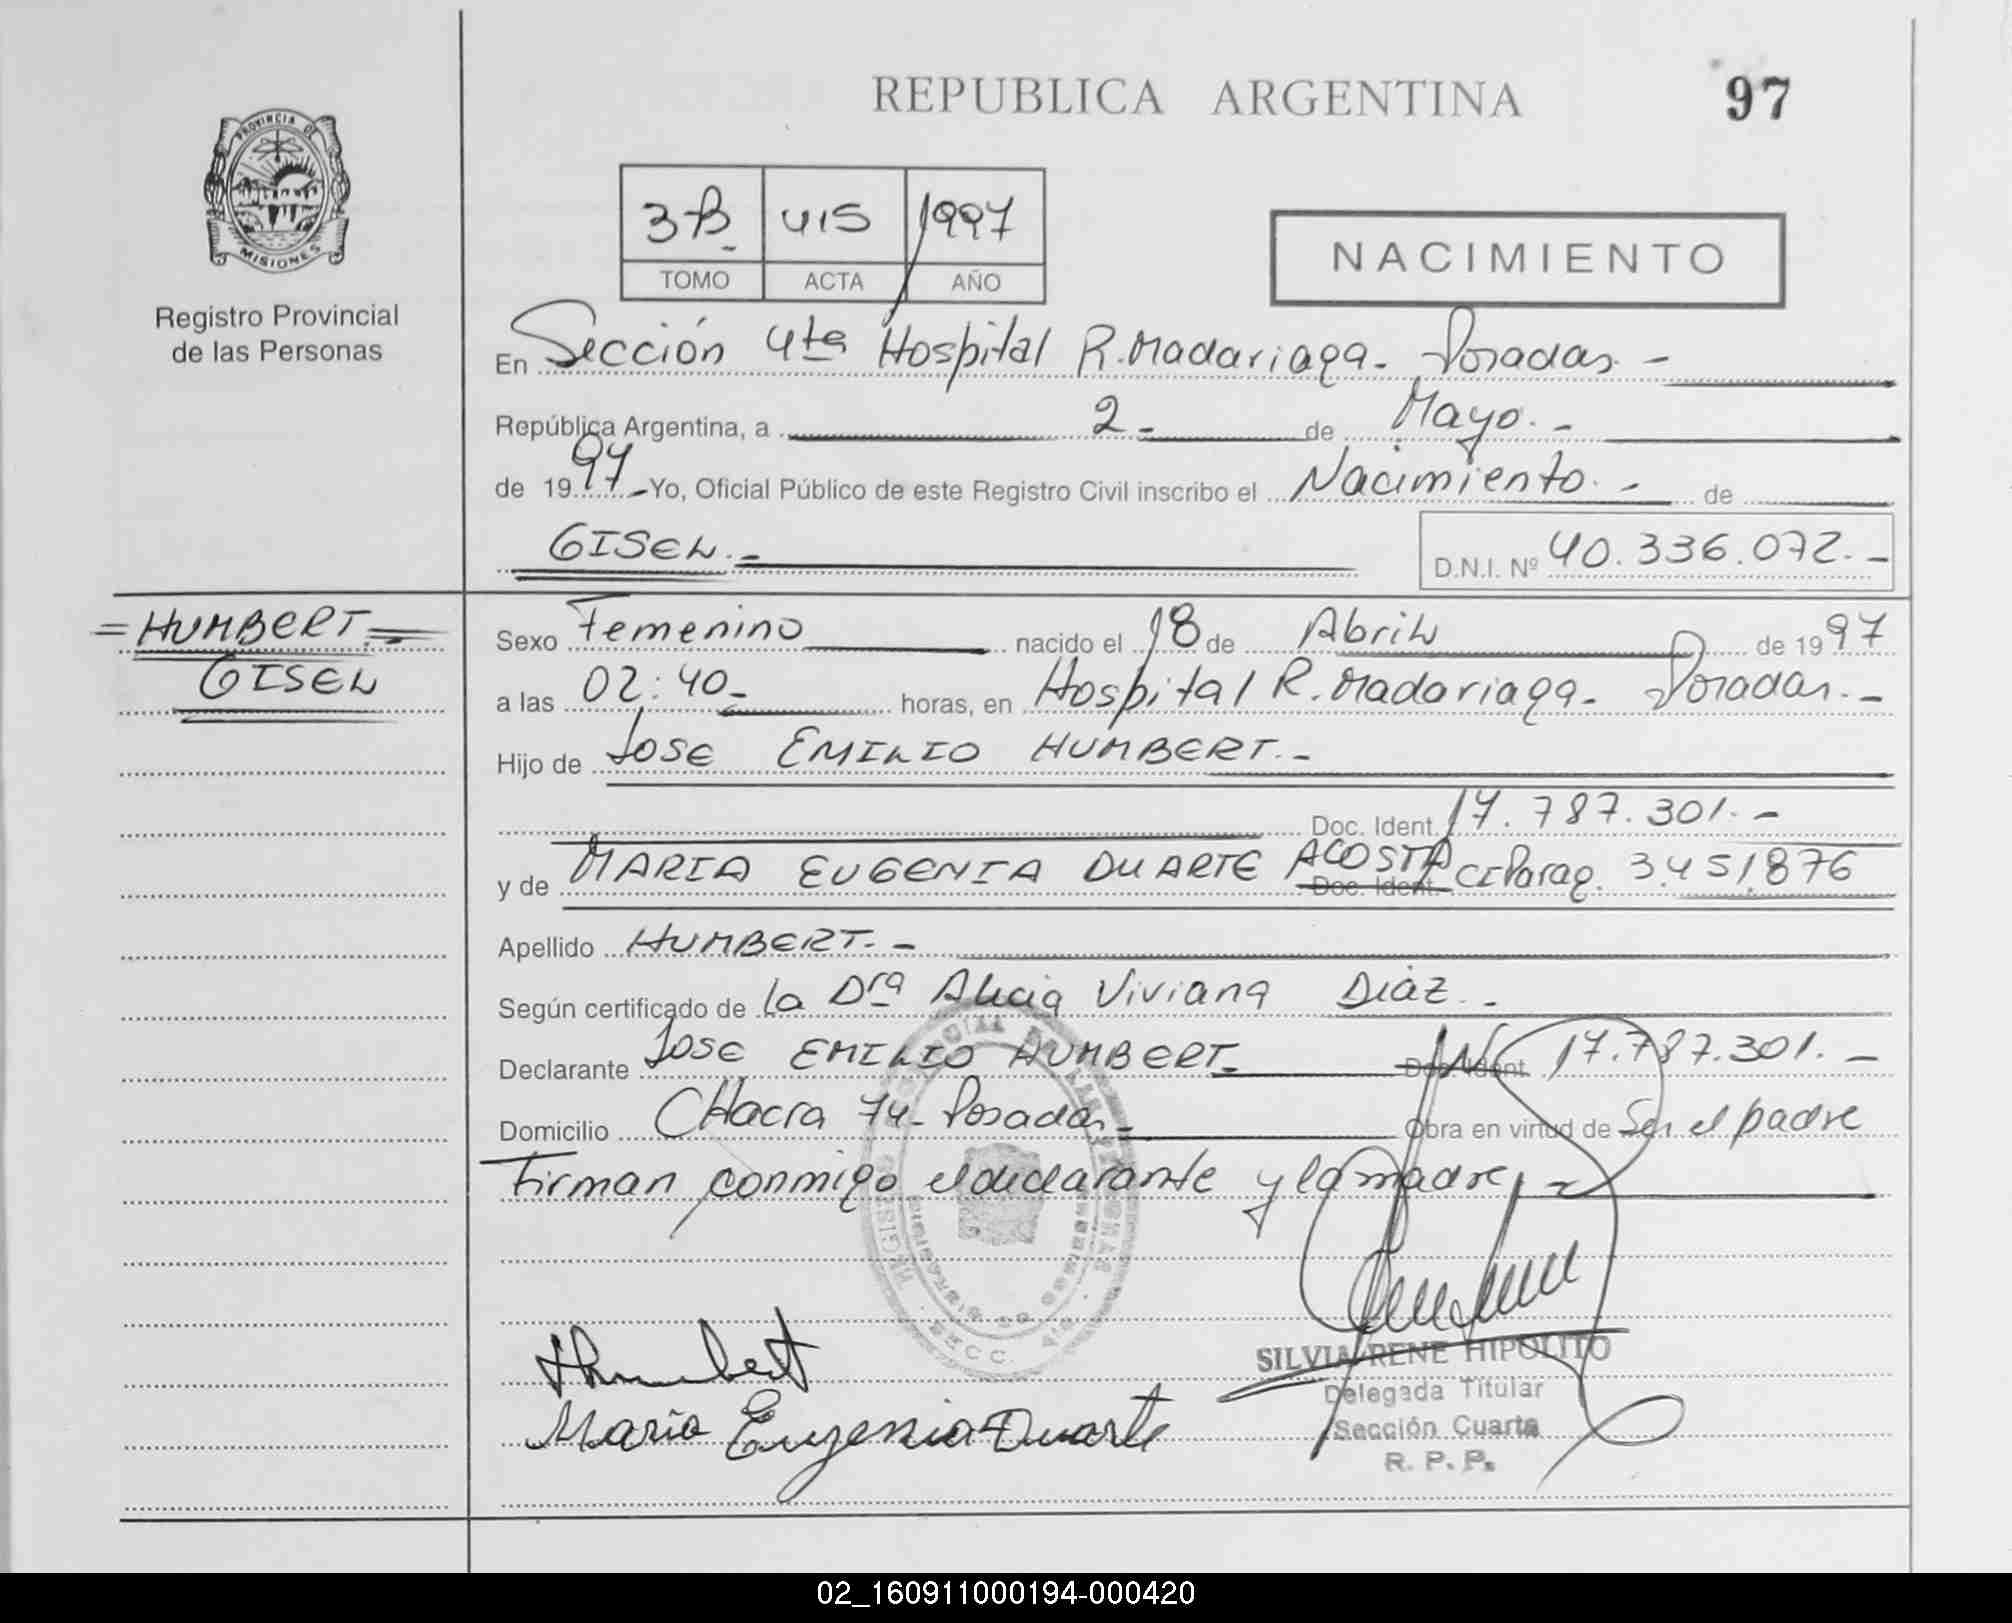 REPUBLICA ARGENTINA
97
PROVINCIA DE
MISIONES
Registro Provincial
de las Personas
3B 415 1997
TOMO ACTA AÑO
NACIMIENTO
En Sección 4ta Hospital R. Madariaga - Posadas. -
República Argentina, a 2 - de Mayo. -
de 1997 - Yo, Oficial Público de este Registro Civil inscribo el Nacimiento. - de
GISEL. -
D.N.I. Nº 40.336.072. -
= HUMBERT. =
GISEL
Sexo Femenino nacido el 18 de Abril de 1997
a las 02:40 - horas, en Hospital R. Madariaga - Posadas. -
Hijo de JOSE EMILIO HUMBERT. -
Doc. Ident. 17.787.301. -
y de MARIA EUGENIA DUARTE ACOSTA Doc. Ident. CI Parag. 3.451.876
Apellido HUMBERT. -
Según certificado de la Dra Alicia Viviana Diaz. -
Declarante JOSE EMILIO HUMBERT - Doc. Ident. 17.787.301. -
Domicilio CHacra 74 - Posadas - Obra en virtud de Ser el padre
Firman conmigo el declarante y la madre, -
Humbert
Maria Eugenia Duarte
SILVIA RENE HIPOLITO
Delegada Titular
Sección Cuarta
R. P. P.
02_160911000194-000420